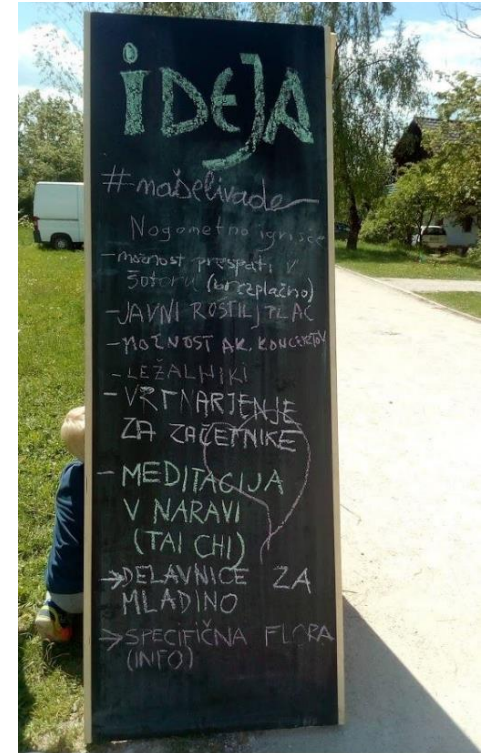 iDEJA
#našelivade
Nogometno igrišče
-možnost prespati v
šotoru (brezplačno)
-JAVNI ROŠTILJ PLAC
-MOŽNOST AK. KONCERTOV
-LEŽALNIKI
-VRTNARJENJE
ZA ZAČETNIKE
-MEDITACIJA
V NARAVI
(TAI CHI)
→DELAVNICE ZA
MLADINO
→SPECIFIČNA FLORA
(INFO)